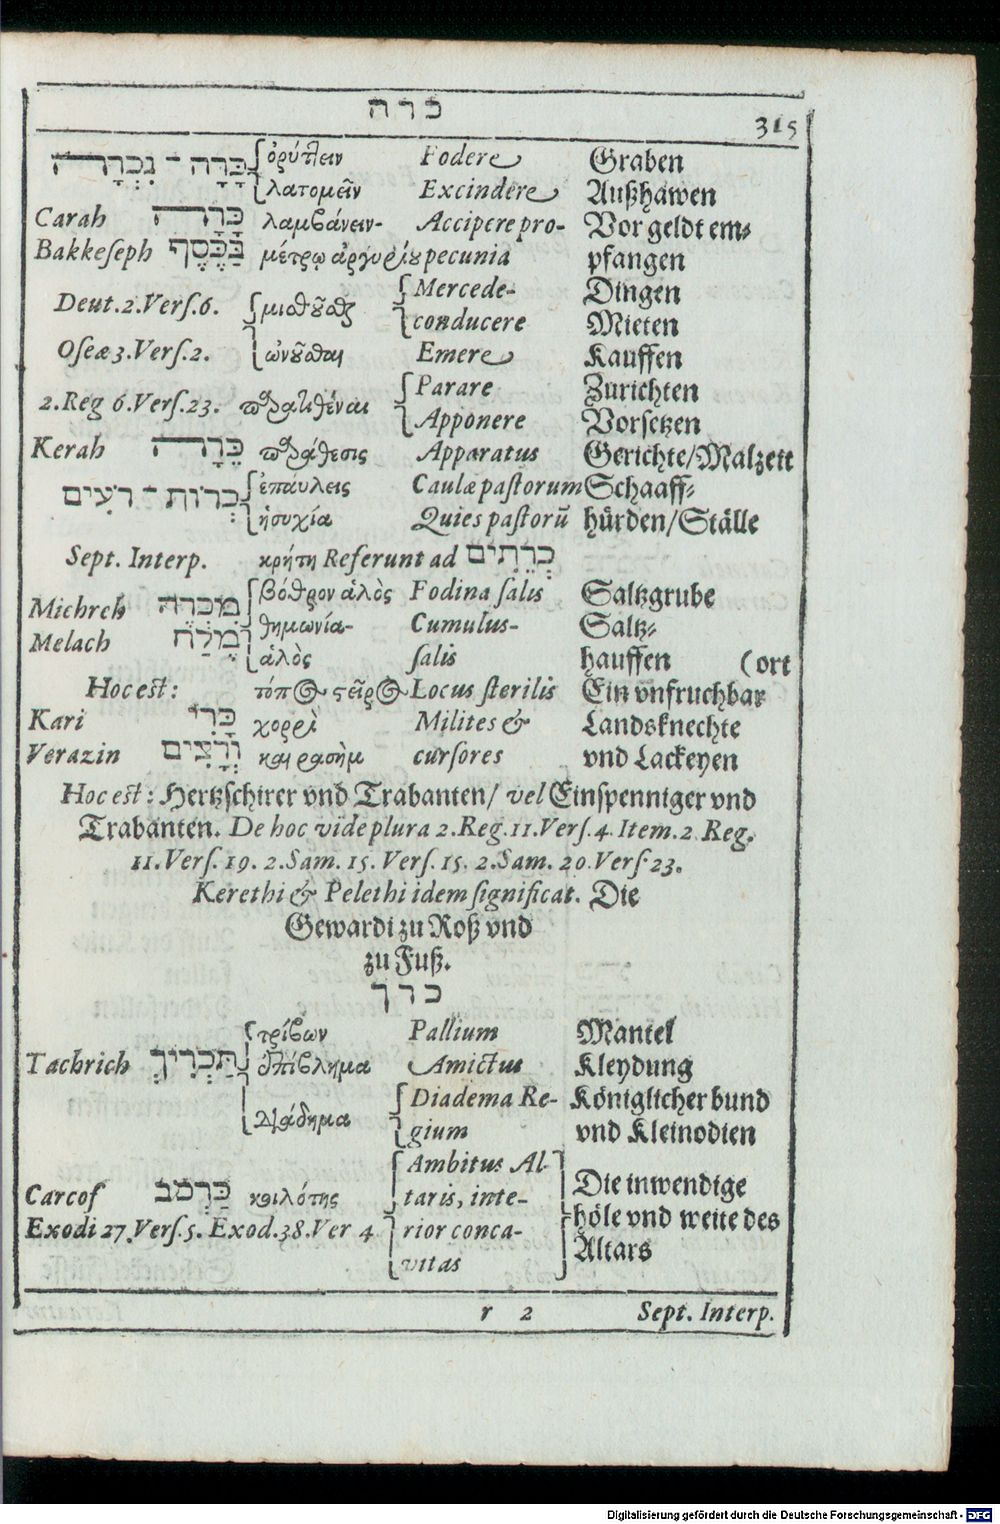 כרה
315
כָּרָה - נִכְרָה ὀρύττειν Fodere Graben
λατομεῖν Excindere Außhawen
Carah כָּרָה λαμβάνειν- Accipere pro- Vor geldt em-
Bakkeseph בַּכֶּסֶף μέτρῳ ἀργυρίου pecunia pfangen
Mercede- Dingen
Deut. 2. Vers. 6. μισθοῦσθαι conducere Mieten
Oseæ 3. Vers. 2. ὠνοῦσθαι Emere Kauffen
Parare Zurichten
2. Reg 6. Vers. 23. παρατιθέναι Apponere Vorsetzen
Kerah כֵּרָה παράθεσις Apparatus Gerichte/Malzeit
כְּרוֹת - רֹעִים ἐπαύλεις Caulæ pastorum Schaaff-
ἡσυχία Quies pastorū hürden/Ställe
Sept. Interp. κρήτη Referunt ad כְּרֵתִים
Michreh מִכְרֵה βόθρον ἁλὸς Fodina salis Saltzgrube
θημωνία- Cumulus- Saltz-
Melach מֶלַח ἁλός salis hauffen (ort
Hoc est: τόπος στεῖρος Locus sterilis Ein vnfruchbar
Kari כָּרִי χορρὶ Milites & Landsknechte
Verazin וְרָצִים καὶ ρασὴμ cursores vnd Lackeyen
Hoc est: Hertzschirer vnd Trabanten/ vel Einspenniger vnd
Trabanten. De hoc vide plura 2. Reg. 11. Vers. 4. Item. 2. Reg.
11. Vers. 19. 2. Sam. 15. Vers. 15. 2. Sam. 20. Vers 23.
Kerethi & Pelethi idem significat. Die
Gewardi zu Roß vnd
zu Fuß.
כרך
τρίβων Pallium Mantel
Tachrich תַּכְרִיךְ ἐπίβλημα Amictus Kleydung
Diadema Re- Königlicher bund
διάδημα gium vnd Kleinodien
Ambitus Al- Die inwendige
Carcof כַּרְכֹּב κοιλότης taris, inte- höle vnd weite des
Exodi 27. Vers. 5. Exod. 38. Ver 4 rior conca- Altars
vitas
r 2 Sept. Interp.
Digitalisierung gefördert durch die Deutsche Forschungsgemeinschaft - DFG